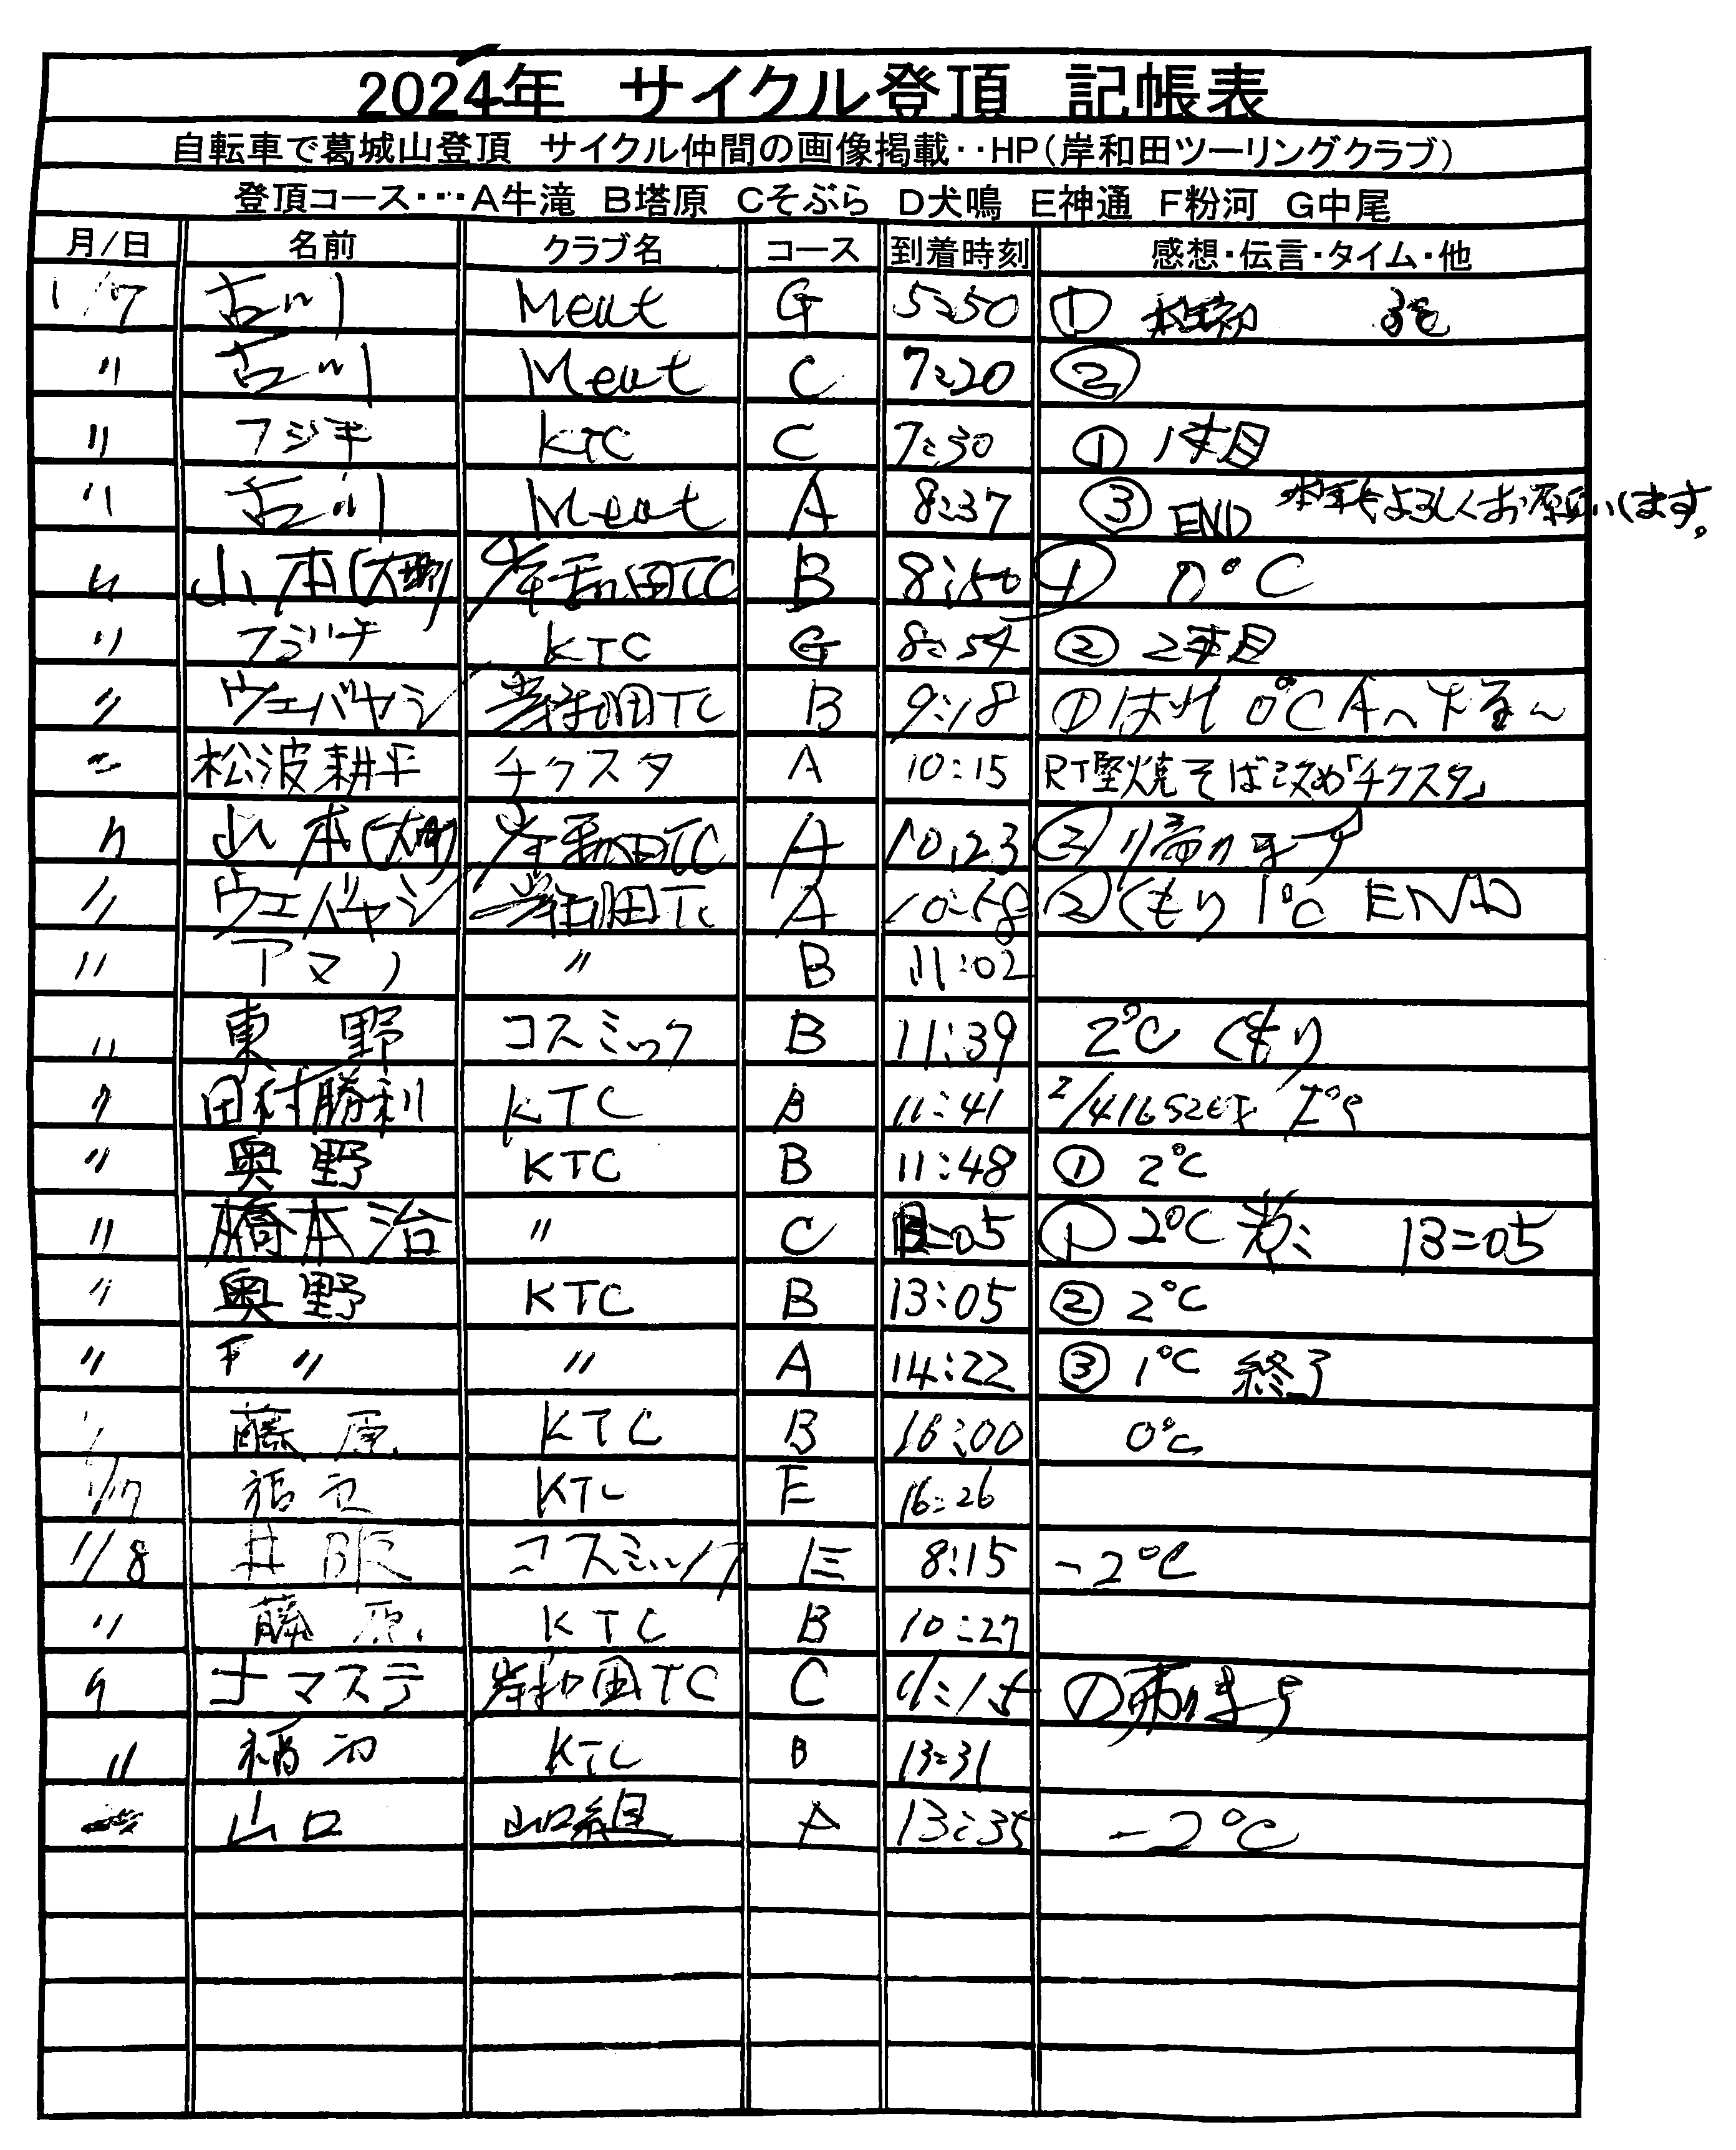 2024年 サイクル登頂 記帳表
自転車で葛城山登頂 サイクル仲間の画像掲載‥HP(岸和田ツーリングクラブ)
登頂コース･･･A牛滝 B塔原 Cそぶら D犬鳴 E神通 F粉河 G中尾
月/日 名前 クラブ名 コース 到着時刻 感想･伝言･タイム･他
1/7 古川 Meat G 5:50 ①
〃 古川 Meat C 7:20 ②
〃 フジ KTC C 7:30 ① 1本目
〃 古川 Meat A 8:37 ③ END 本年もよろしくお願いします。
〃 山本 岸和田TC B 8:50 ① 0°C
〃 フジ KTC G 8:54 ② 2本目
〃 ウエバヤシ 岸和田TC B 9:18 ① はれ 0°C Aへ下る～
〃 松波耕平 チクスタ A 10:15 RT堅焼そば改め「チクスタ」
〃 山本 岸和田TC A 10:23 ② 帰ります
〃 ウエバヤシ 岸和田TC A 10:58 ② くもり 1°C END
〃 アマノ 〃 B 11:02
〃 東野 コスミック B 11:39 2°C くもり
〃 田村勝利 KTC B 11:41
〃 奥野 KTC B 11:48 ① 2°C
〃 橋本治 〃 C 13=05 ① 2°C 13=05
〃 奥野 KTC B 13:05 ② 2°C
〃 〃 〃 A 14:22 ③ 1°C 終了
藤原 KTC B 16:00 0°C
1/7 KTC E 16:26
1/8 井阪 コスミック E 8:15 -2°C
〃 藤原 KTC B 10:27
〃 ナマステ 岸和田TC C 11:15 ①
〃 KTC B 13:31
〃 山口 山口組 A 13:35 -2°C